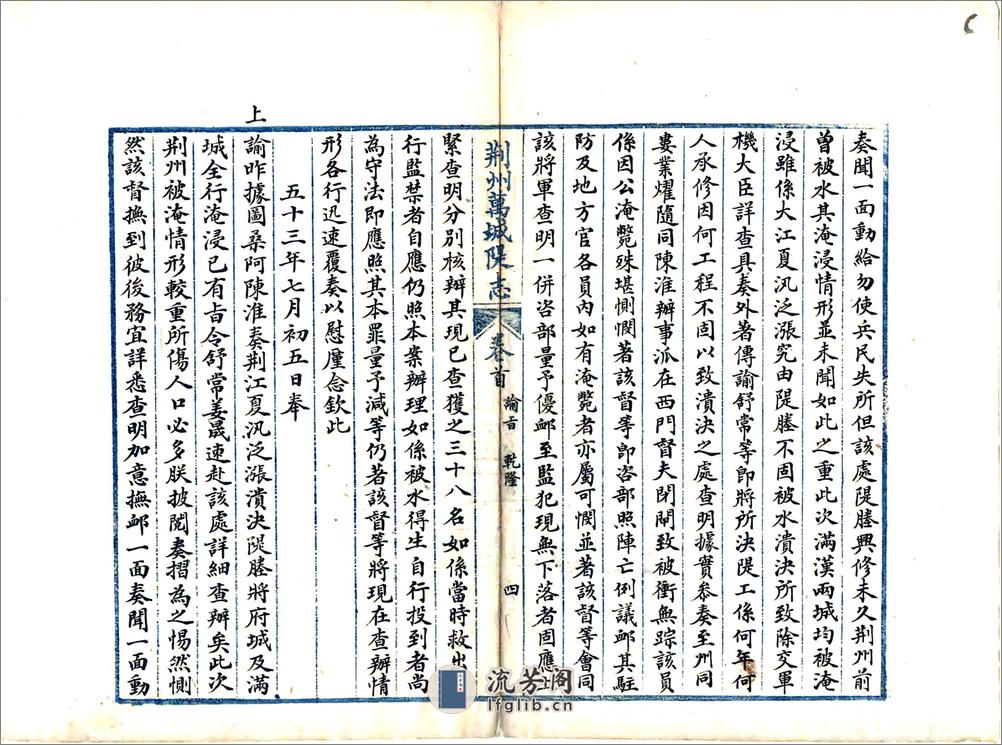 奏聞一面動給勿使兵民失所但該處隄塍興修未久荆州前
曾被水其淹浸情形並未聞如此之重此次滿漢兩城均被淹
浸雖係大江夏汛泛漲究由隄塍不固被水潰決所致除交軍
機大臣詳查具奏外著傳諭舒常等即將所決隄工係何年何
人承修因何工程不固以致潰決之處查明據實叅奏至州同
婁業燿隨同陳淮辦事派在西門督夫閉閘致被衝無踪該員
係因公淹斃殊堪惻憫著該督等即咨部照陣亡例議邺其駐
防及地方官各員內如有淹斃者亦屬可憫並著該督等會同
該將軍查明一併咨部量予優邺至監犯現無下落者固應上
緊查明分別核辦其現已查獲之三十八名如係當時救出
行監禁者自應仍照本案辦理如係被水得生自行投到者尚
為守法即應照其本罪量予減等仍著該督等將現在查辦情
形各行迅速覆奏以慰廑念欽此
五十三年七月初五日奉
上
諭昨據圖桑阿陳淮奏荆江夏汛泛漲潰決隄塍將府城及滿
城全行淹浸已有旨令舒常姜晟速赴該處詳細查辦矣此次
荆州被淹情形較重所傷人口必多朕披閱奏摺為之惕然惻
然該督撫到彼後務宜詳悉查明加意撫邺一面奏聞一面動
荆州萬城隄志
卷首
諭旨 乾隆
四
流芳阁
lfglib.cn